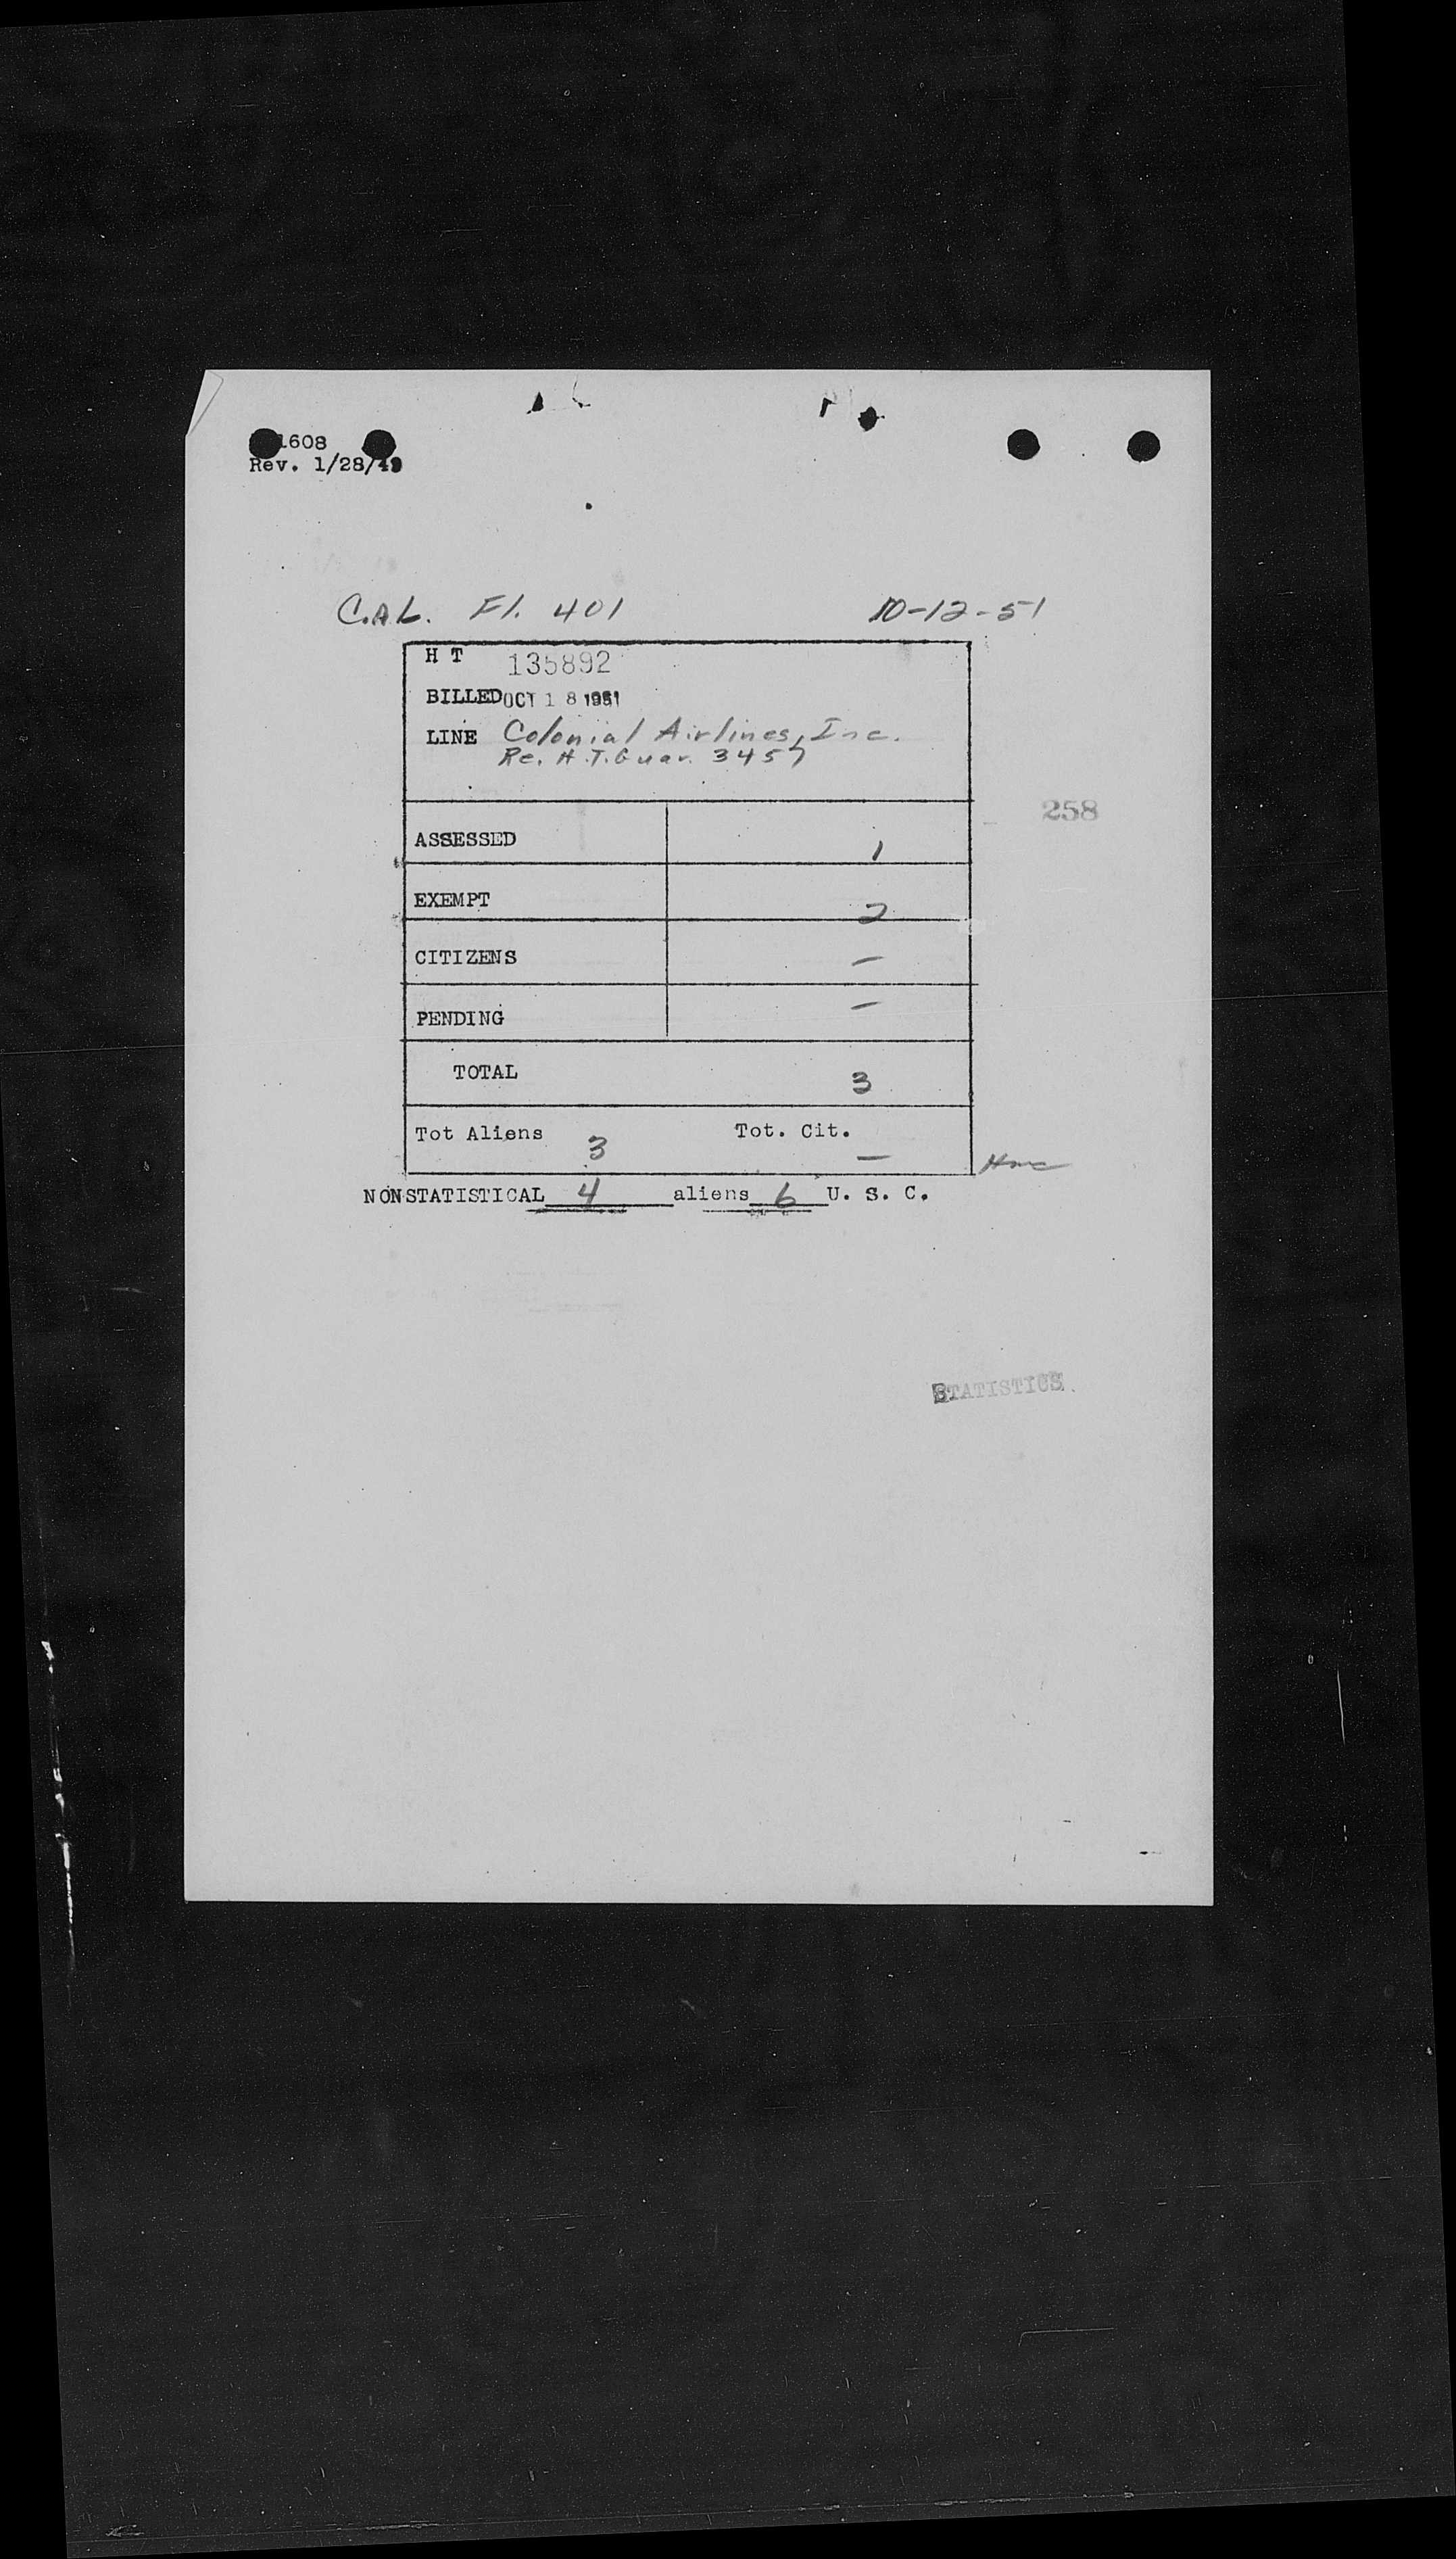 1608
Rev. 1/28/49
C.A.L. Fl. 401 10-12-51
H T 135892
BILLED OCT 18 1951
LINE Colonial Airlines, Inc.
Re. H.T. Guar. 3457
258
ASSESSED 1
EXEMPT 2
CITIZENS –
PENDING –
TOTAL 3
Tot Aliens 3 Tot. Cit. –
NONSTATISTICAL 4 aliens 6 U. S. C.
STATISTICS